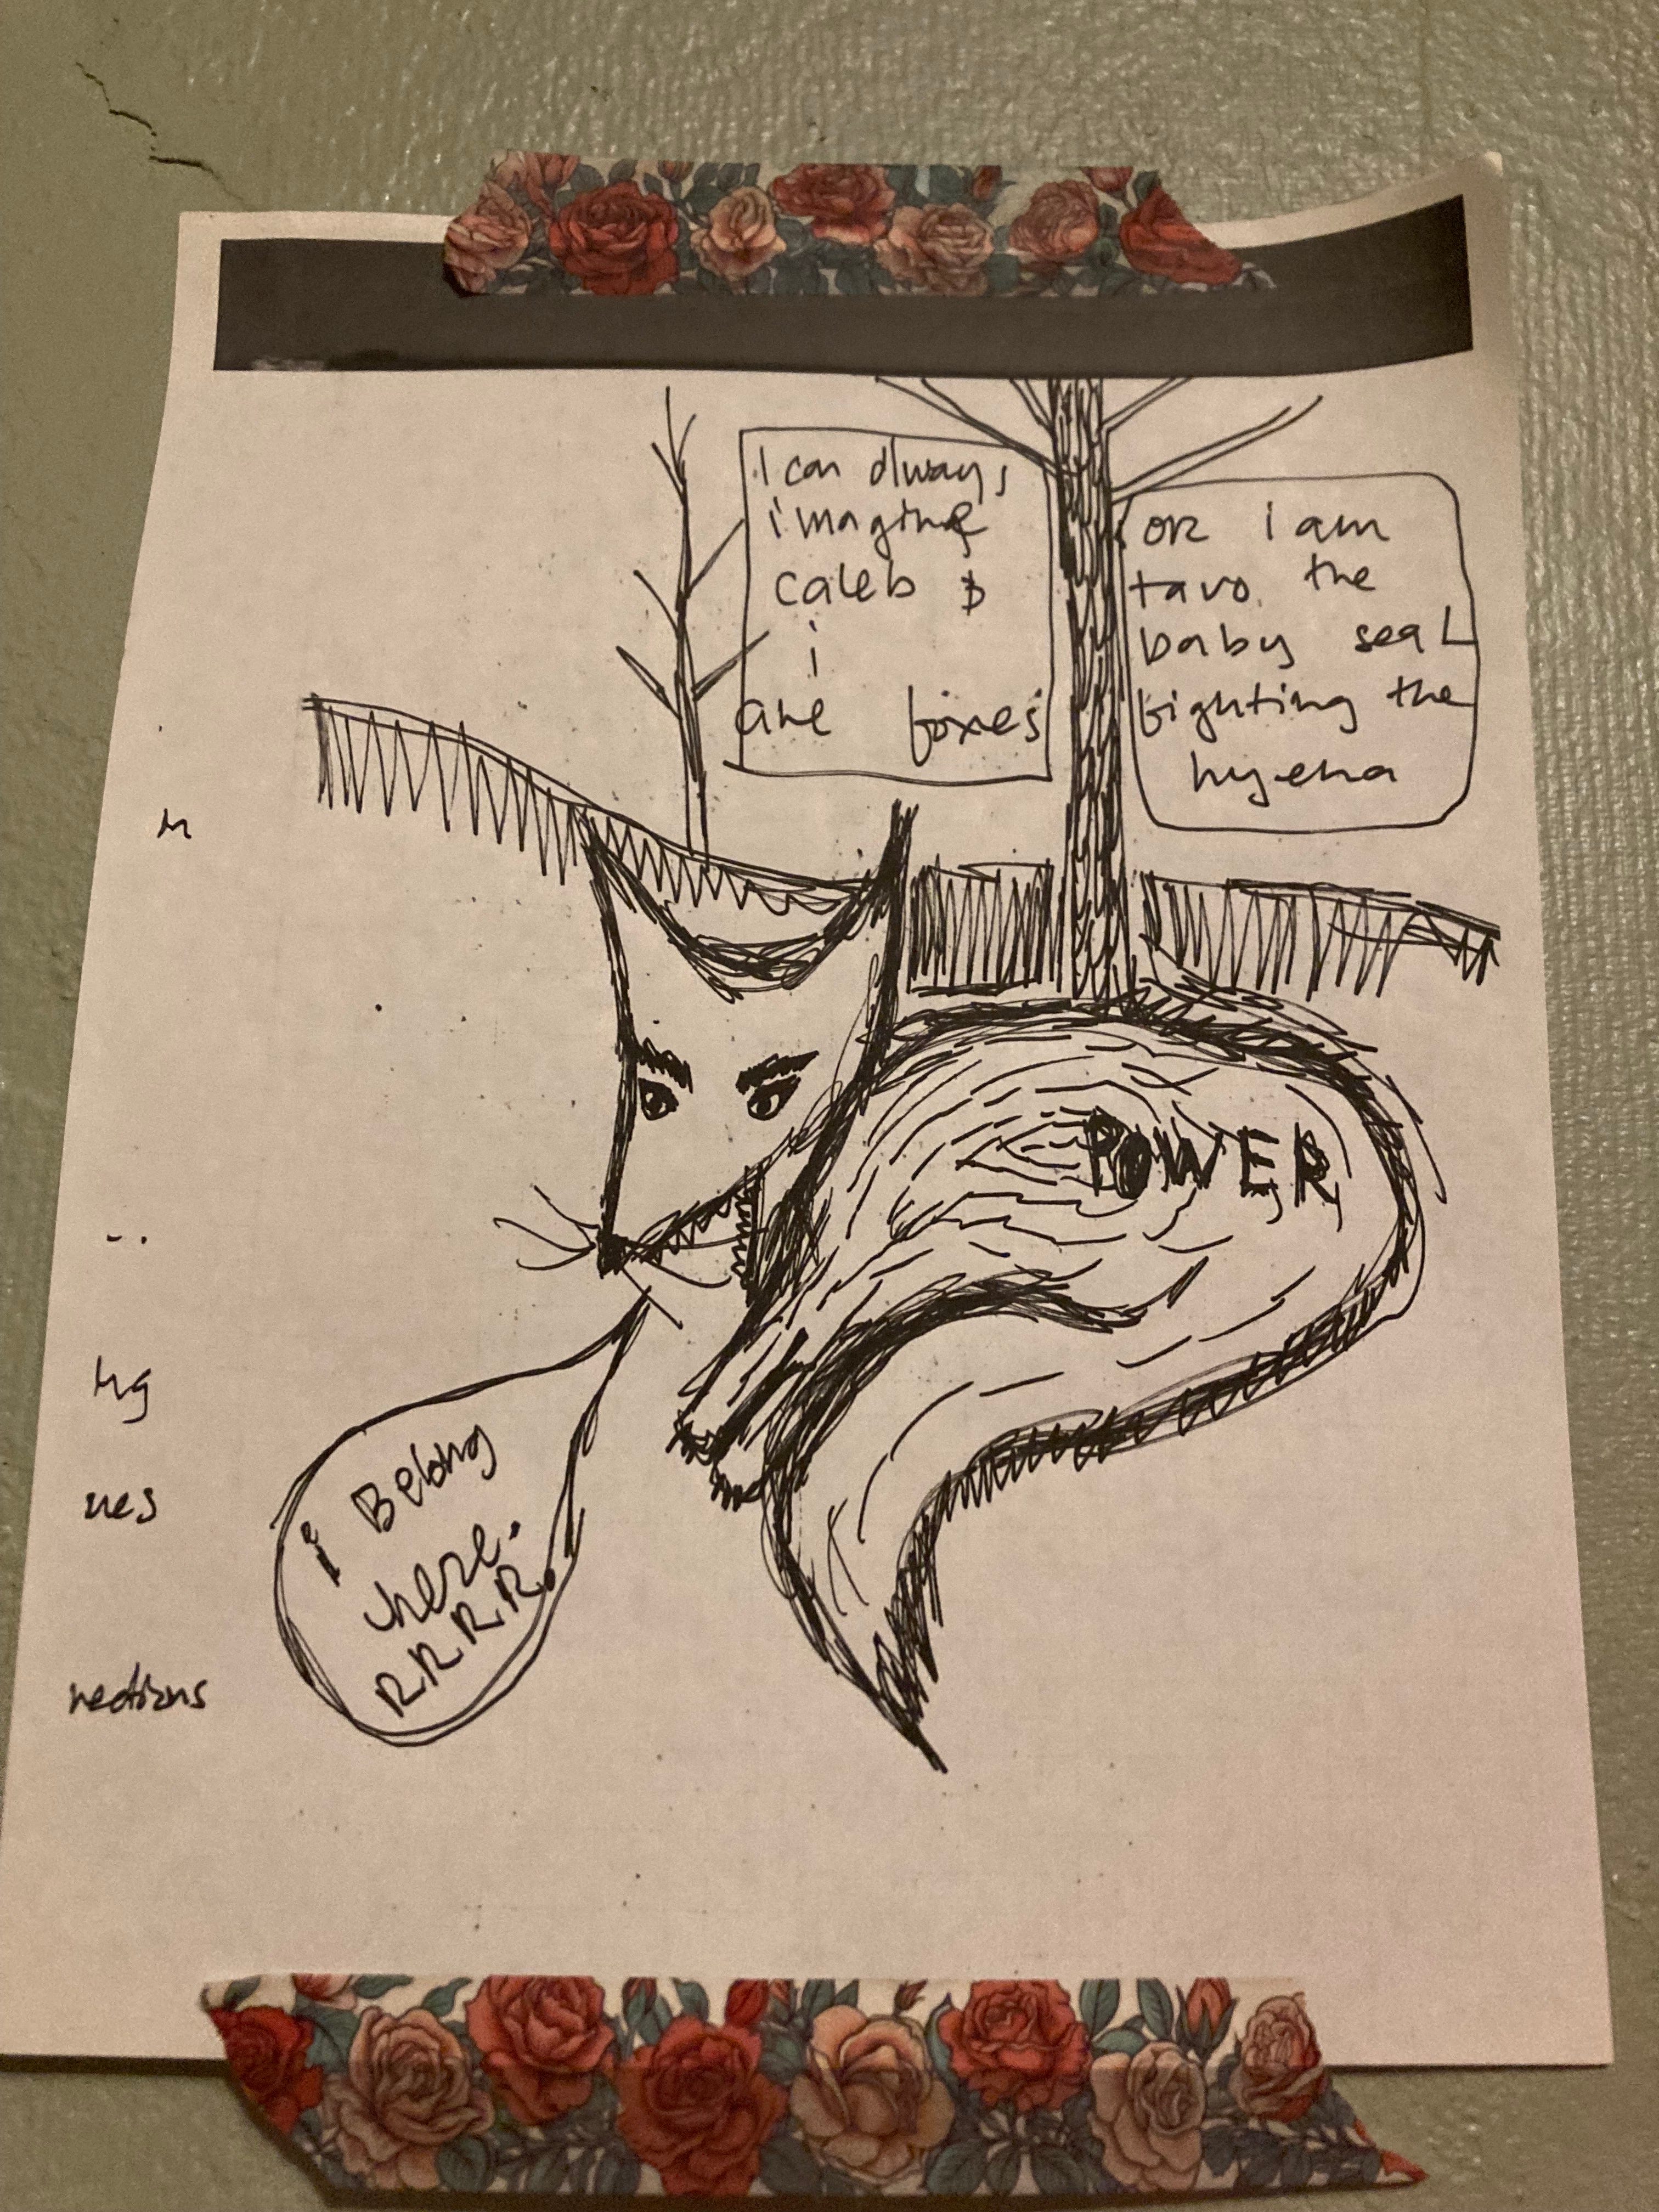 I can always
imagine
caleb &
i
are foxes
OR i am
tavo the
baby seal
fighting the
hyena
POWER
i Belong
here.
RRRR.
ng
ues
nections